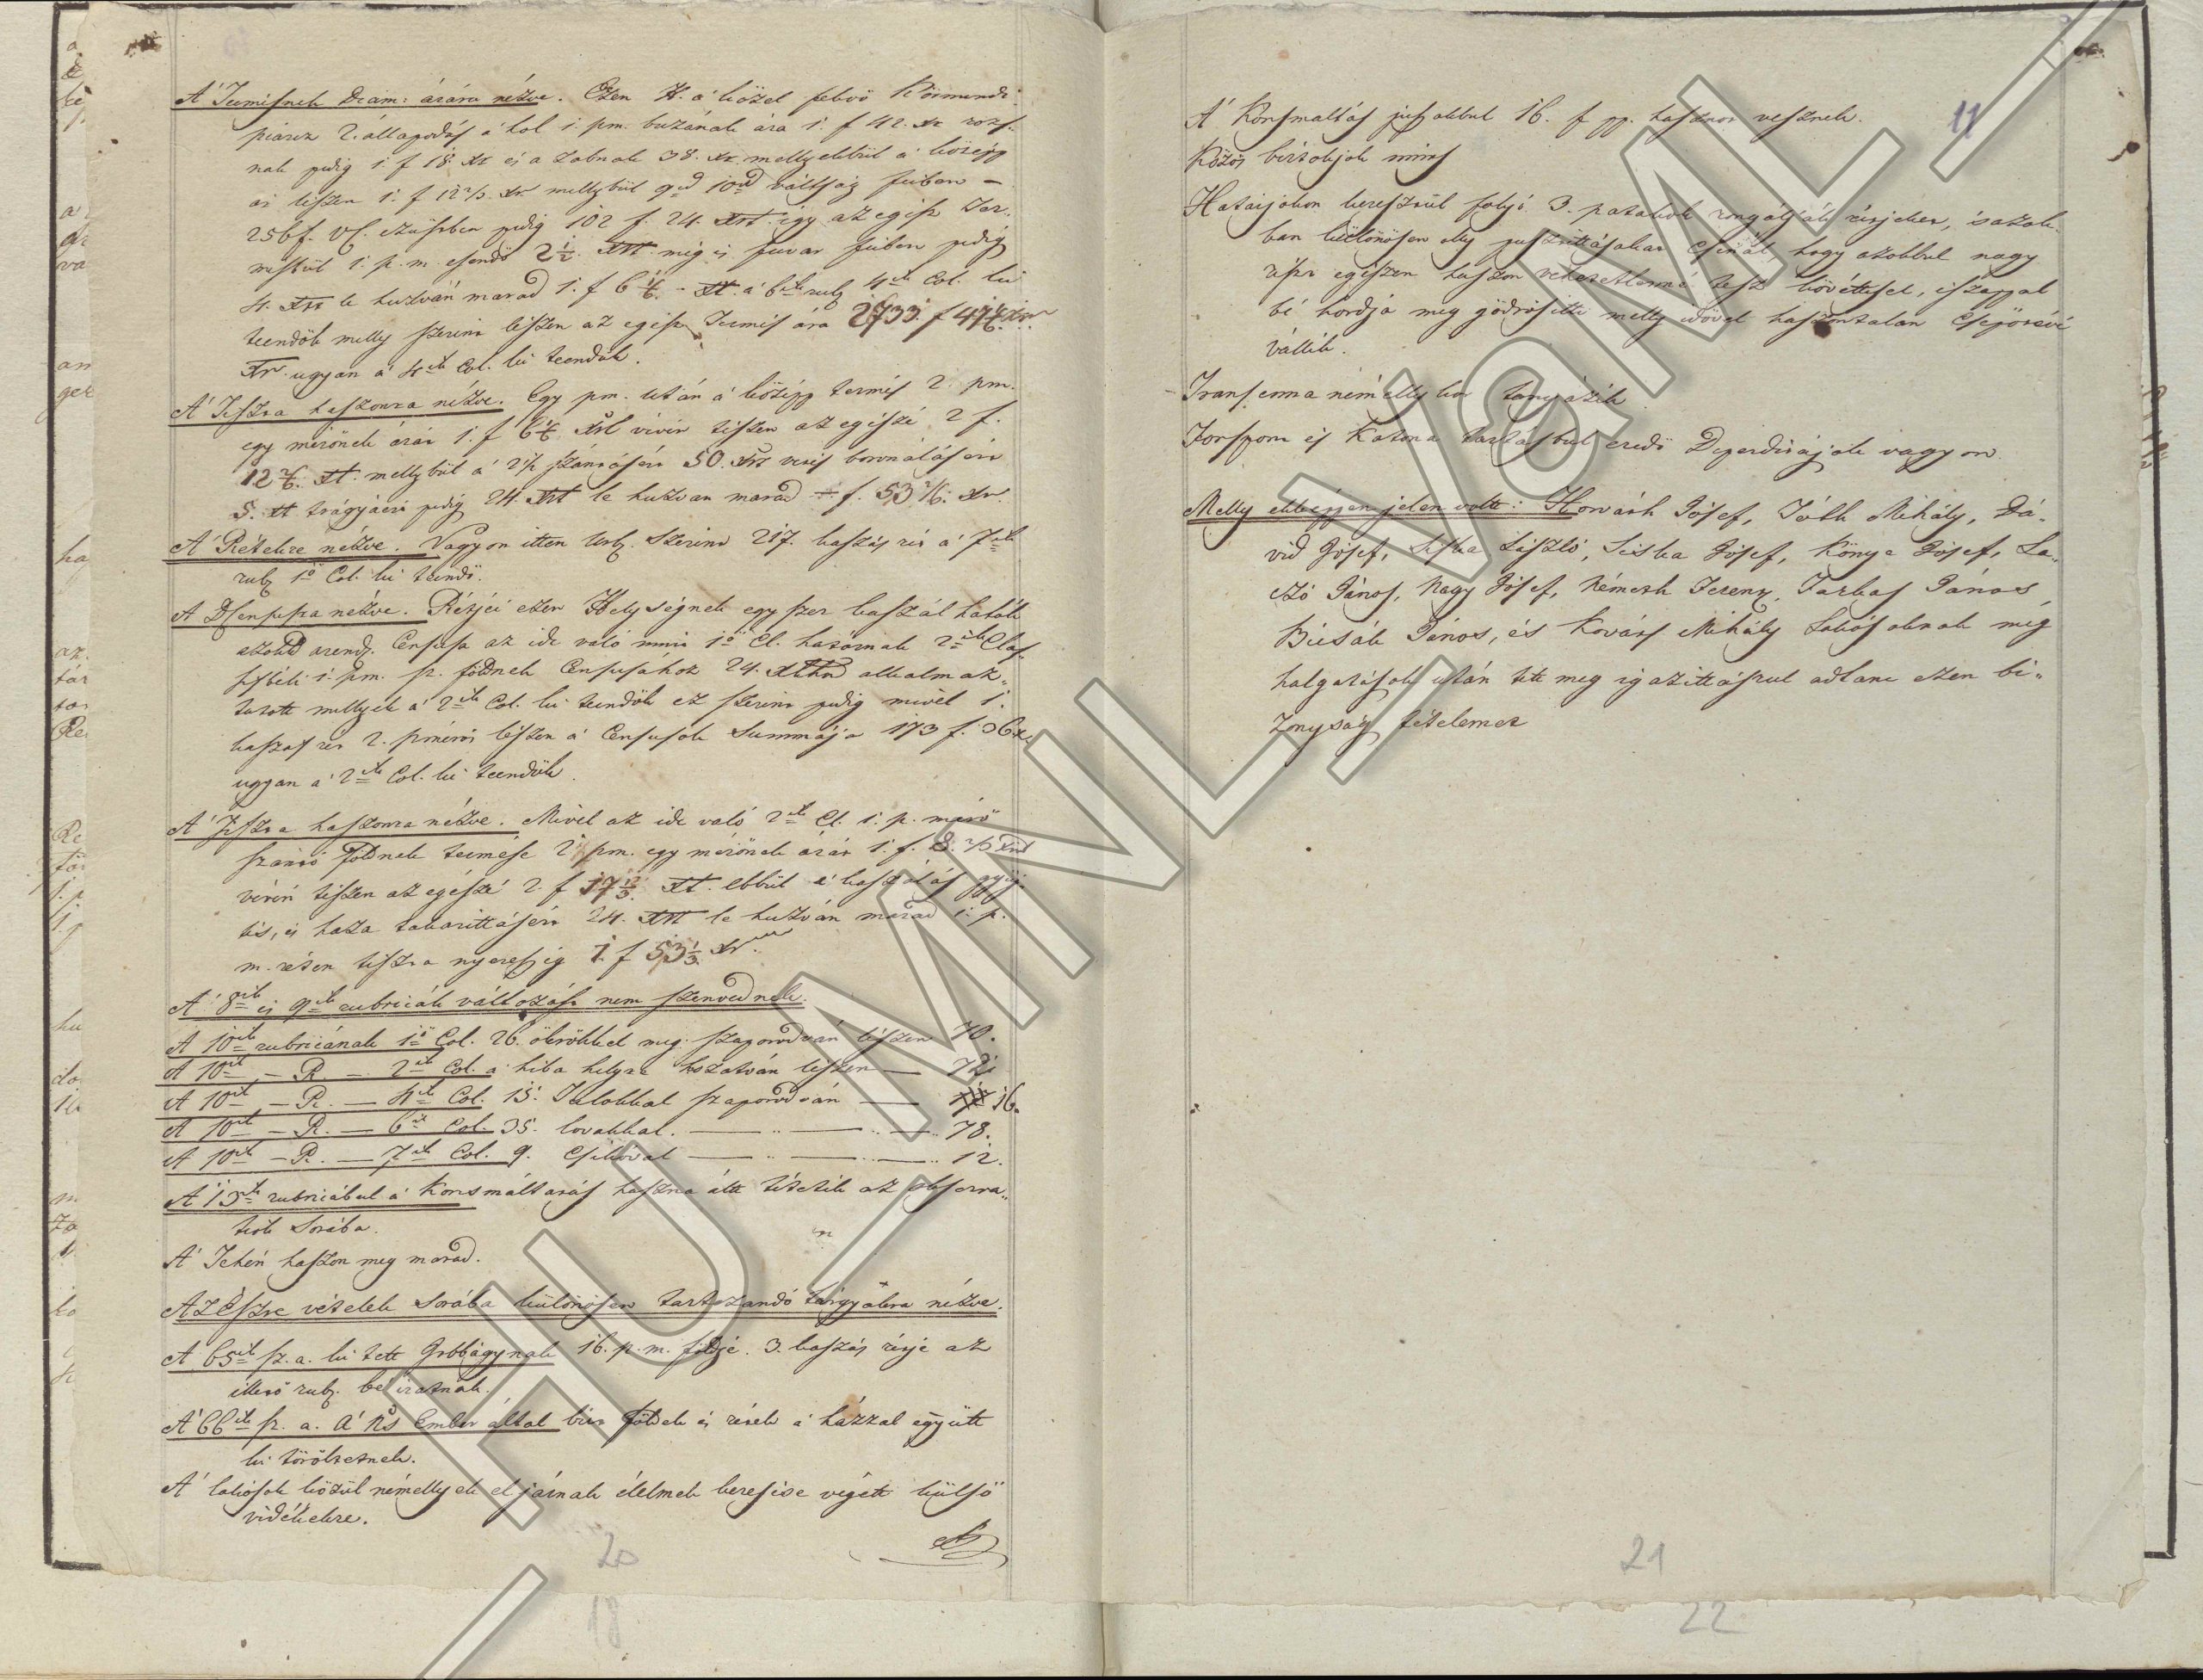 A' Termisnek Deam: árára nézve. Ezen H. a' közel fekvő Körmendi
piarcz 2. állapodás a' hol 1. pm. buzának ára 1. f 42. xr rozs-
nak pedig 1 f 18. xr és a zabnak 38. xr. mellyekbül a' középp
ár tiszen 1. f 12 2/3. xr mellybül váltság fejében –
256 f. Vf. ezüstben pedig 102 f. 24. xrt így az egész Ter-
mésbül 1. p. m. esendő 2 1/2. xrt még is fuvar fejiben pedig
4. xrt le huzván marad 1. f 6 1/6. xr. a' 6ik rub. 4ik Col. ki
teendők melly szerint lészen az egész Termés ára 2733. f 47
xr. ugyan a' 4ik Col. ki teendők.
A' Tiszta haszonra nézve. Egy pm. után a' középp termés 2. pm.
egy mérőnek árát 1. f 6 1/6 xrl vivén tészen az egészé 2 f.
12 2/6. xt. mellybül a' szántásért 50. xrt vetés boronálásért
5. xt trágyáért pedig 24 xrt le huzvan marad – f. 53 2/6. xr.
A' Rétekre nézve. Vagyon itten Urb. szerint 217. kaszás rét a' 7ik
rub 1ő Col. ki teendő.
A Censusra nézve. Rétjei ezen Helységnek egyszer kaszál hatók
azokd arend. Census az ide való mint 1ő Cl. határnak 2ik Clas-
sisbéli 1. pm. sz. földnek Censusahoz 24. alkalmaz-
tatott mellyek a' 2ik Col. ki teendők ez szerint pedig mivel 1.
kaszás rét 2. pmérős lészen a' Censusok Summája 173 f. 36 x.
ugyan a' 2ik Col. ki teendők.
A' Tiszta haszonra nézve. Mivel az ide való 2ik Cl. 1. p. mérő
szántó földnek termése 2 pm. egy mérőnek árát 1. f. 8.
vévén tészen az egészé 2. f 17 xt. ebbül a' kaszálás gyüj-
tés, és haza takarittásért 24. xrt le huzván marad 1. p.
m. réten tiszta nyeresség 1. f 53 1/3. xr.
A' 8ik és 9ik rubricák változást nem szenvednek.
A 10ik rubricának 1ő Col. 26. ökrökkel meg szaporodván lészen 70.
A 10ik – R. – 2ik Col. a hiba helyre hozatván lészen – 72
A 10ik – R. – 4ik Col. 15. Tulokkal szaporodván – 16.
A 10ik – R. – 6ik Col. 35. lovakkal. – 78.
A 10ik – R. – 7ik Col. 9. Csikóval – 12.
A 13ik rubricábul a' Korsmáltatás haszna által tétetik az observa-
tiók Sorába.
A' Tehén haszon meg marad.
Az Észre vételek Sorába különösen tartozandó tárgyokra nézve.
A 65ik sz. a. ki tett 16. p. m. földje. 3. kaszás rétje az
illető rub. be iratnak.
A' 66ik sz. a. A' Ember által birt földek és rétek a' házzal együtt
ki töröltetnek.
A' lakosok közül némellyek el járnak élelmek keresése végett külső
vidékekre.
20
18
11
A' Korsmaltás jussokbul 16. f pp. hasznot vesznek.
Közös birtokjok nints
Határjokon keresztül folyó 3. patakok rongálják rétjeket, és azok-
ban különösen olly pusztittásokat Csinál, hogy azokbul nagy
részt egészen haszon vehetetlenné tesz kövéttsel, iszappal
bé hordja meg gödrösitti melly idővel haszontalan Csepőtévé
válik.
Transenna némelly kor tanyázik
Forspont és Katona tartásbul eredő Deperditájok vagyon.
Melly ekképpen jelen volt: Horváth Jósef, Tóth Mihály, Dá-
vid Jósef, Siska László, Siska Jósef, Könye Jósef, La-
czó János, Nagy Jósef, Németh Ferenz, Farkas János
Bicsák János, és Kováts Mihály Lakósoknak meg
halgatások után tett meg igazittásrul adtam ezen bi-
zonyság tételemet
21
22
HU MNL VSML